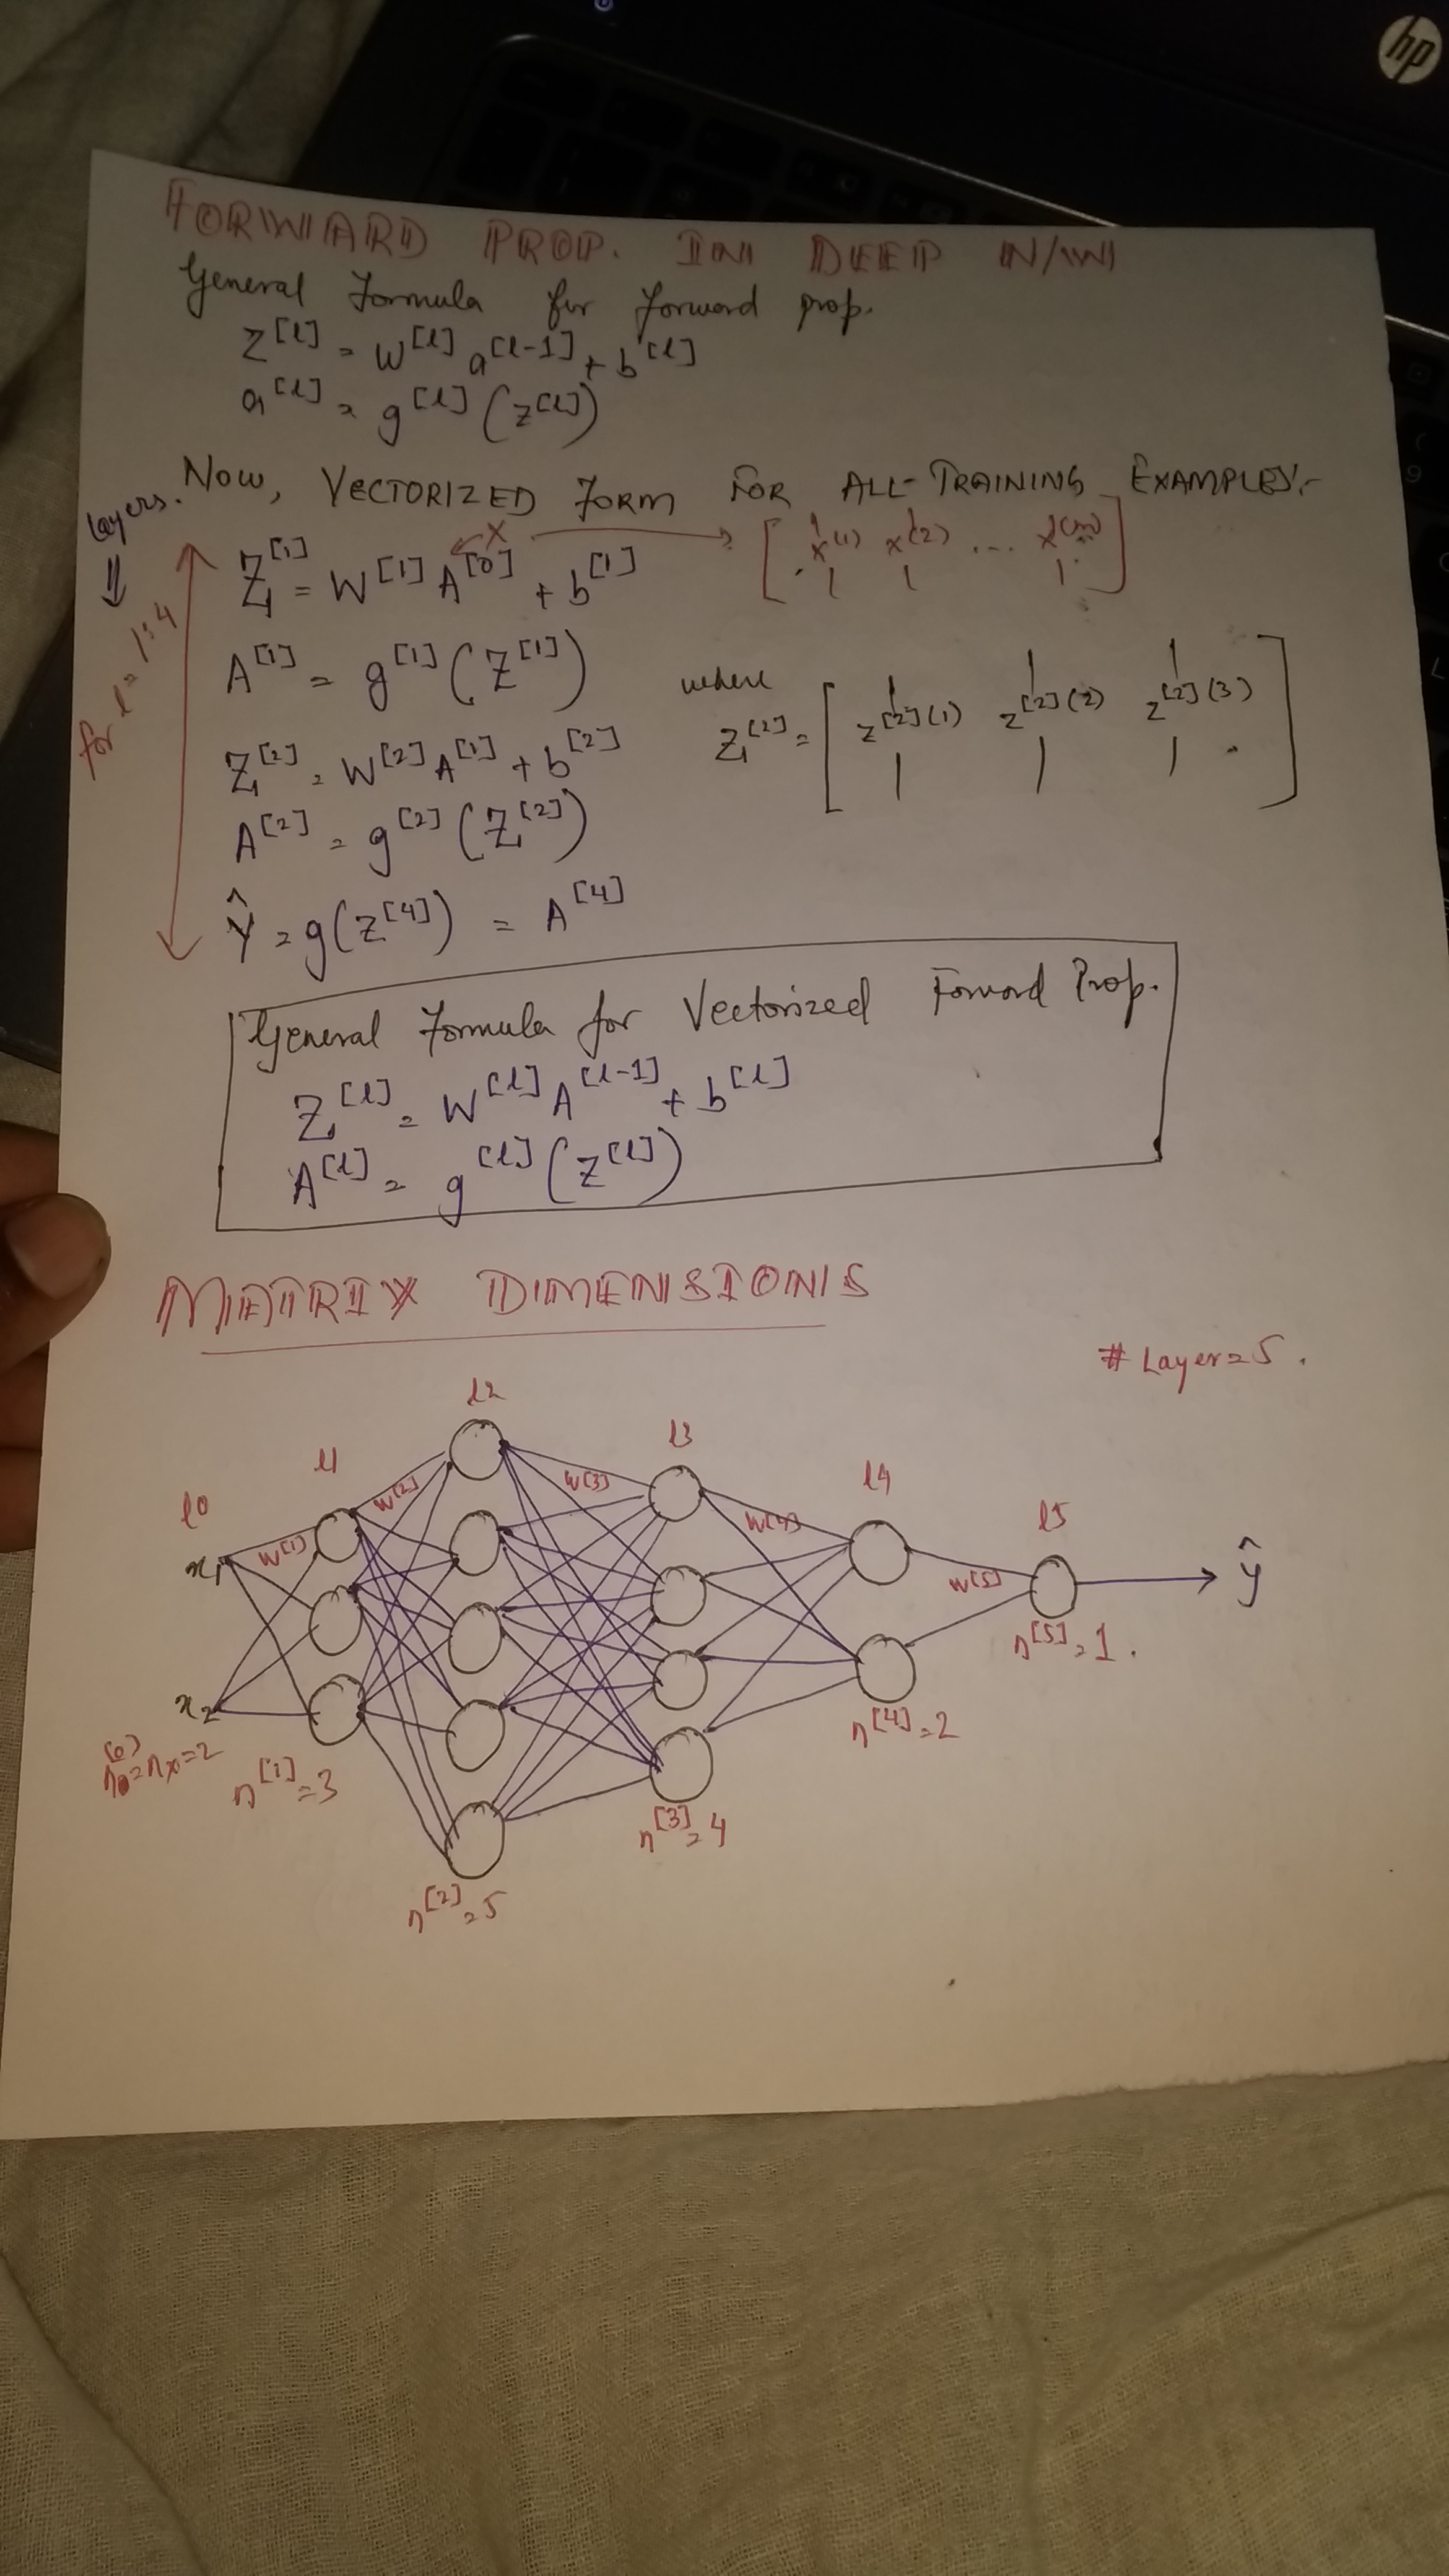 hp
FORWARD PROP. IN DEEP N/W
General Formula for forward prop.
Z[l] = W[l] a[l-1] + b[l]
a[l] = g[l] (z[l])
Now, VECTORIZED FORM FOR ALL-TRAINING EXAMPLES:-
layers.
⇓
for l = 1:4
X → [ x(1) x(2) ... x(m) ]
Z[1] = W[1] A[0] + b[1]
A[1] = g[1] (Z[1])
where
Z[2] = [ z[2](1) z[2](2) z[2](3) ]
Z[2] = W[2] A[1] + b[2]
A[2] = g[2] (Z[2])
Ŷ = g(Z[4]) = A[4]
General Formula for Vectorized Forward Prop.
Z[l] = W[l] A[l-1] + b[l]
A[l] = g[l] (Z[l])
MATRIX DIMENSIONS
# Layer = 5.
l0 l1 l2 l3 l4 l5
W[1] W[2] W[3] W[4] W[5]
x1
x2
ŷ
n[0] = nx = 2
n[1] = 3
n[2] = 5
n[3] = 4
n[4] = 2
n[5] = 1.